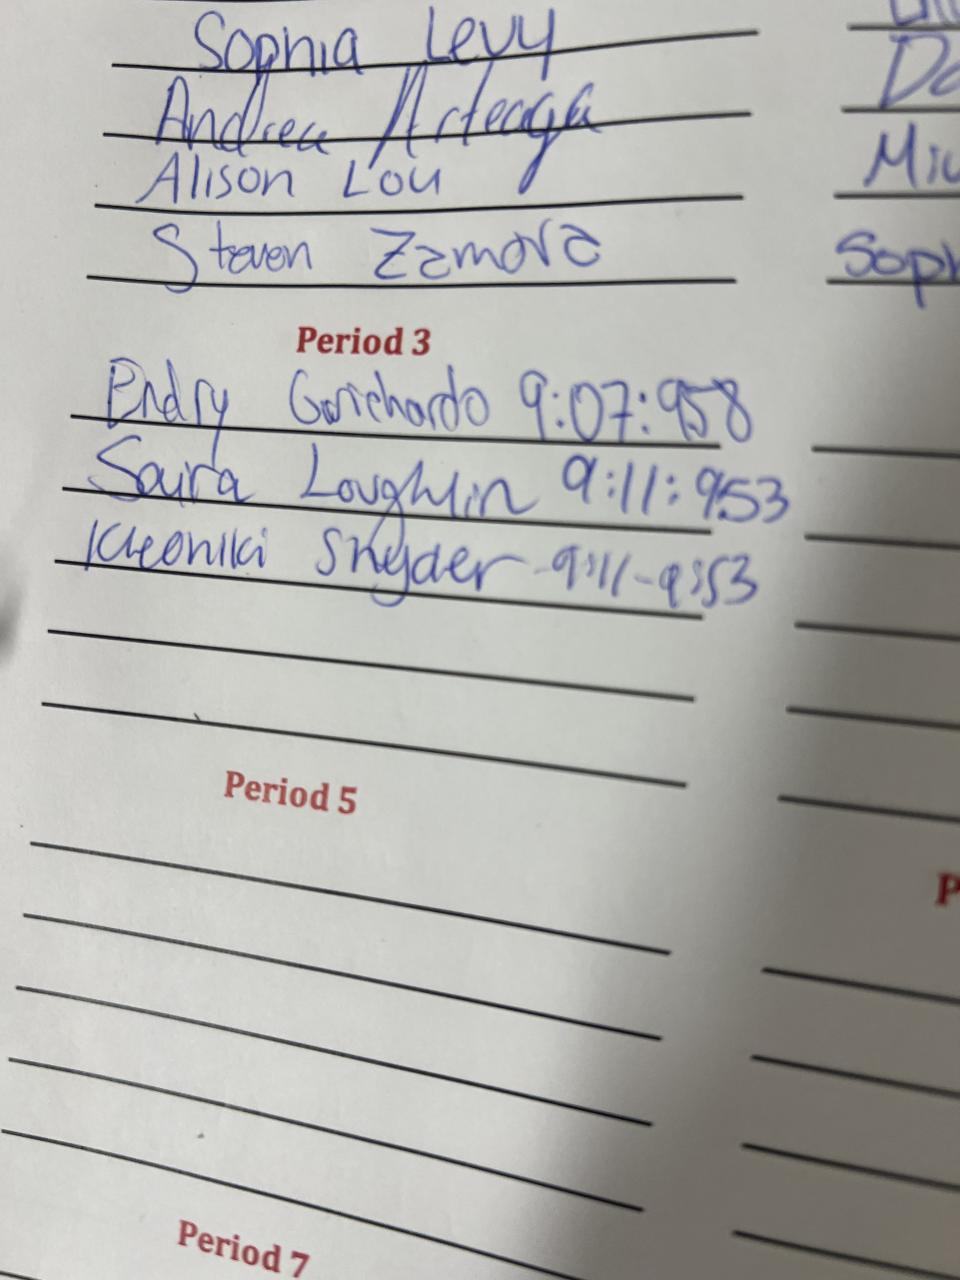 Sophia Levy
Andrea Arteaga
Alison Lou
Steven Zamora
Do
Miu
Soph
Period 3
Endry Guichardo 9:07:958
Saura Loughlin 9:11:953
Kleoniki Snyder - 9:11-9:53
Period 5
P
Period 7